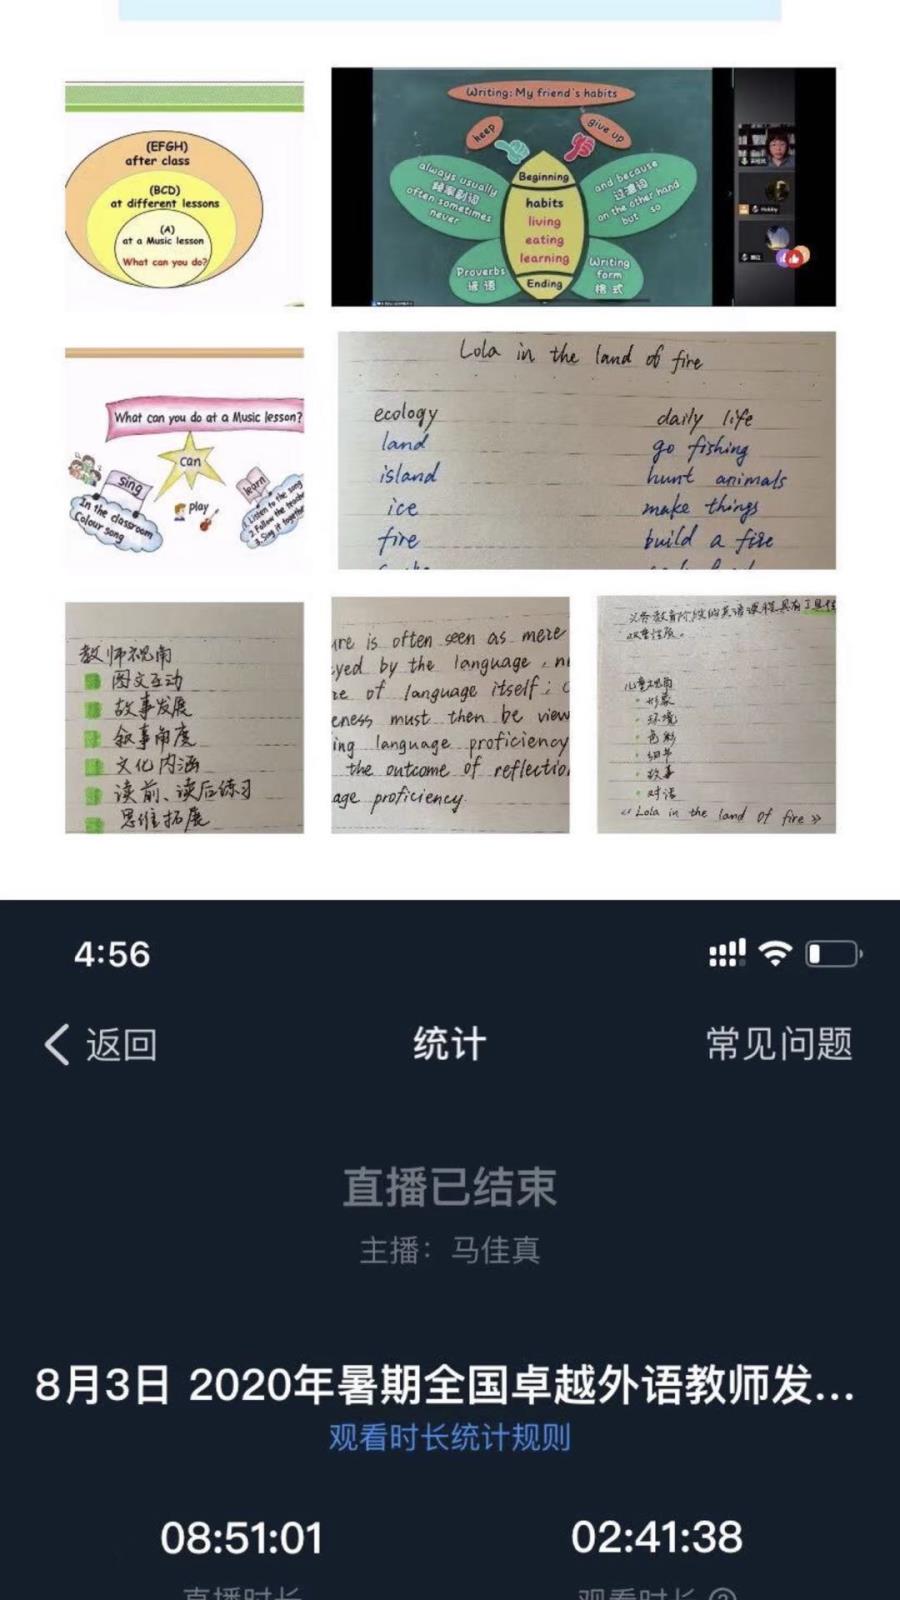 (EFGH)
after class
(BCD)
at different lessons
(A)
at a Music lesson
What can you do?
Writing: My friend's habits
keep
give up
always usually
频率副词
often sometimes
never
Beginning
habits
living
eating
learning
Ending
and because
过渡词
on the other hand
but so
Proverbs
谚语
Writing
form
格式
What can you do at a Music lesson?
can
sing
In the classroom
Colour song
play
learn
1. Listen to the song
2. Follow the teache
3. Sing it togethe
Lola in the land of fire
ecology
land
island
ice
fire
daily life
go fishing
hunt animals
make things
build a fire
教师视角
图文互动
故事发展
叙事角度
文化内涵
读前、读后练习
思维拓展
ure is often seen as mere
yed by the language, n
re of language itself; c
eness must then be view
ing language proficiency
the outcome of reflectio
age proficiency.
义务教育阶段的英语课程具有工具性
双重性质。
儿童视角
形象
环境
色彩
细节
故事
对话
《Lola in the land of fire》
4:56
返回
统计
常见问题
直播已结束
主播：马佳真
8月3日 2020年暑期全国卓越外语教师发...
观看时长统计规则
08:51:01
02:41:38
直播时长
观看时长